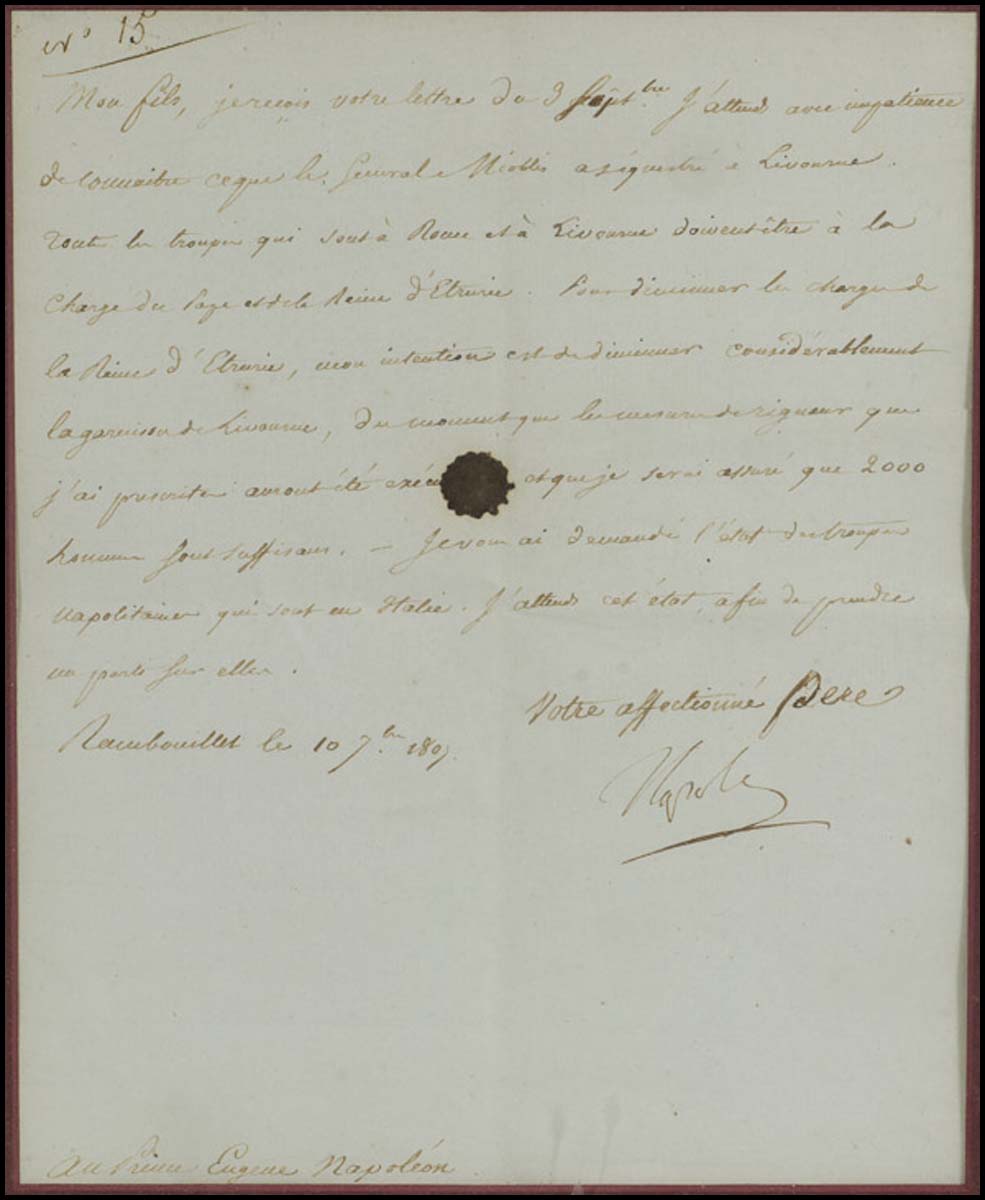 N° 15
Mon fils, je reçois votre lettre du 3 Sept.bre J'attends avec impatience
de connaitre ce que le Général Miollis a séquestré à Livourne.
Toutes les troupes qui sont à Rome et à Livourne doivent être à la
charge du Pape et de la Reine d'Etrurie. Pour diminuer les charges de
la Reine d'Etrurie, mon intention est de diminuer considérablement
la garnison de Livourne, du moment que les mesures de rigueur que
j'ai prescrites auront été exécu et que je serai assuré que 2000
hommes sont suffisans. — Je vous ai demandé l'état des troupes
napolitaines qui sont en Italie. J'attends cet état, afin de prendre
un parti sur elles.
Votre affectionné Pere
Rambouillet le 10 7.bre 1807.
Napole
Au Prince Eugene Napoléon